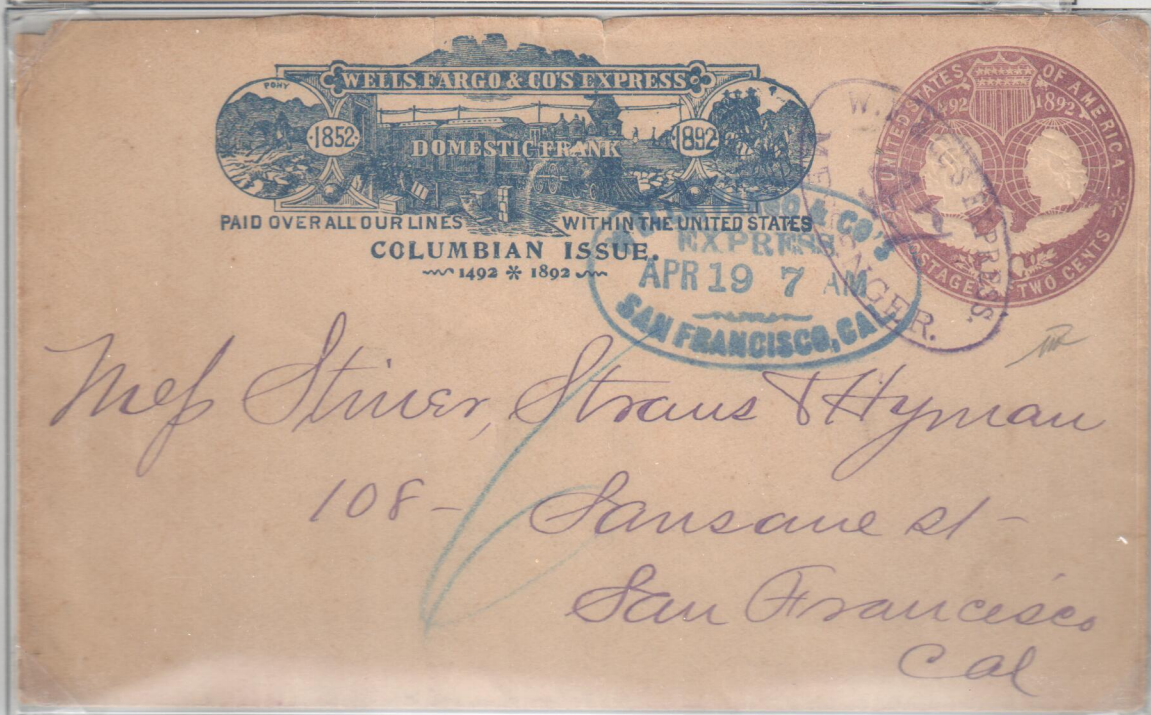 WELLS, FARGO & CO'S EXPRESS
PONY
1852
DOMESTIC FRANK
1892
PAID OVER ALL OUR LINES WITHIN THE UNITED STATES
COLUMBIAN ISSUE.
1492 * 1892
UNITED STATES OF AMERICA
1892
POSTAGE TWO CENTS
EXPRESS.
MESSENGER.
& CO'S
EXPRESS
APR 19 7 AM
SAN FRANCISCO, CAL
Mess Stiner, Straus & Hyman
108 - Sansome st -
San Francisco
Cal